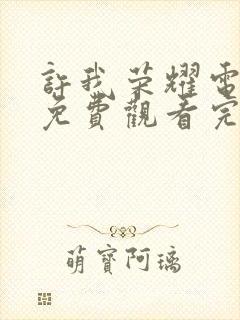 許我荣耀電
免費觀看完
萌寶阿璃